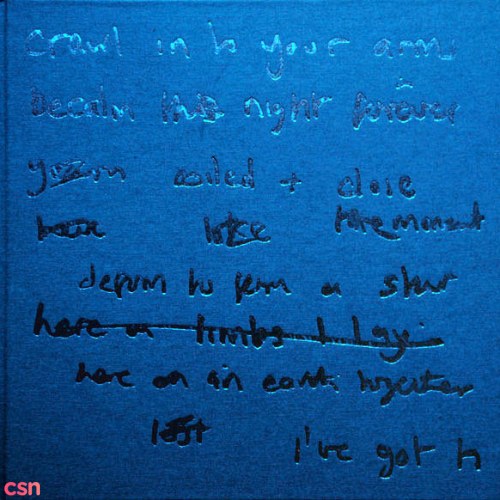 Crawl in to your arms
Become this night forever
yearn coiled + close
like the moment
to form a star
here on limbs I lay
here on an earth together
lost
I've got to
csn